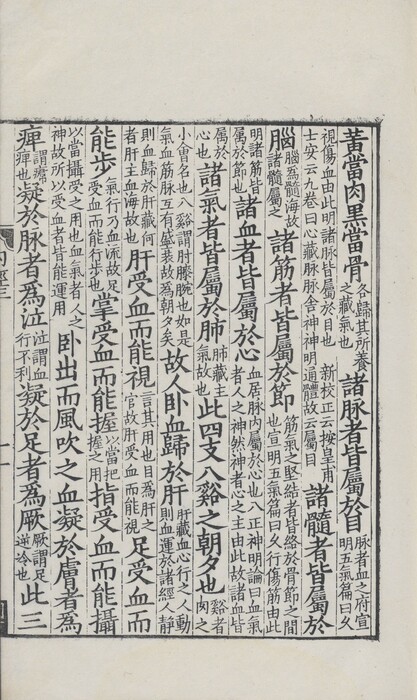 黃當肉黑當骨各歸其所養之藏氣也諸脉者皆屬於目脉者血之府宣明五氣篇曰久
視傷血由此明諸脉皆屬於目也 新校正云按皇甫士安云九卷曰心藏脉脉舍神神明通體故云屬目諸髓者皆屬於
腦腦為髓海故諸髓屬之諸筋者皆屬於節筋氣之堅結者皆絡於骨節之間也宣明五氣篇曰久行傷筋由此
明諸筋皆屬於節也諸血者皆屬於心血居脉內屬於心也八正神明論曰血氣者人之神然神者心之主由此故諸血皆
屬於心也諸氣者皆屬於肺肺藏主氣故也此四支八谿之朝夕也谿者肉之
小會名也八谿謂肘膝腕也如是氣血筋脉互有盛衰故為朝夕矣故人卧血歸於肝肝藏血心行之人動則血運於諸經人靜
則血歸於肝藏何者肝主血海故也肝受血而能視言其用也目為肝之官故肝受血而能視足受血而
能步氣行乃血流故足受血而能行步也掌受血而能握以當把握之用指受血而能攝
以當攝受之用也血氣者人之神故所以受血者皆能運用卧出而風吹之血凝於膚者為
痺謂㿏痺也凝於脉者為泣泣謂血行不利凝於足者為厥厥謂足逆冷也此三